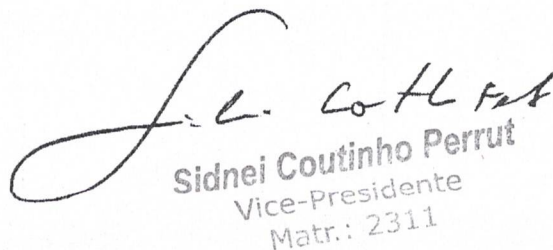 Sidnei Coutinho Perrut
Vice-Presidente
Matr.: 2311